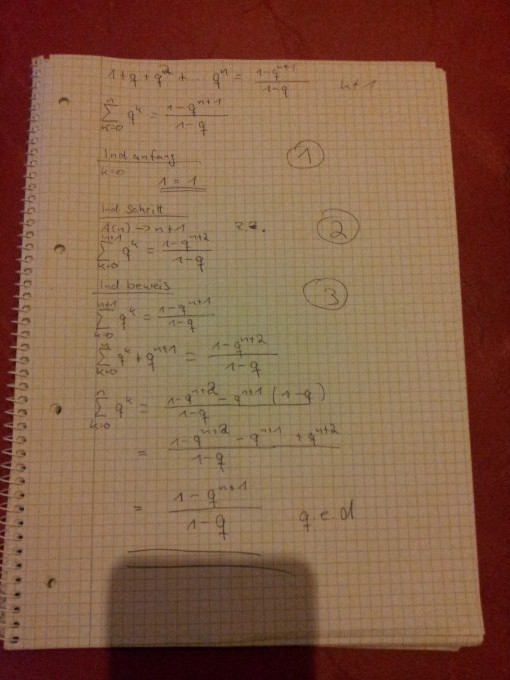 1+q+q²+... qⁿ = (1-qⁿ⁺¹)/(1-q)
∑ⁿₖ₌₀ qᵏ = (1-qⁿ⁺¹)/(1-q)
Ind anfang ①
k=0
1 = 1
Ind Schritt
A(n) → n+1 z.z. ②
∑ⁿ⁺¹ₖ₌₀ qᵏ = (1-qⁿ⁺²)/(1-q)
Ind beweis ③
∑ⁿ⁺¹ₖ₌₀ qᵏ = (1-qⁿ⁺¹)/(1-q)
∑ⁿₖ₌₀ qᵏ + qⁿ⁺¹ = (1-qⁿ⁺²)/(1-q)
∑ⁿₖ₌₀ qᵏ = (1-qⁿ⁺² - qⁿ⁺¹ (1-q))/(1-q)
= (1-qⁿ⁺² - qⁿ⁺¹ + qⁿ⁺²)/(1-q)
= (1-qⁿ⁺¹)/(1-q) q.e.d